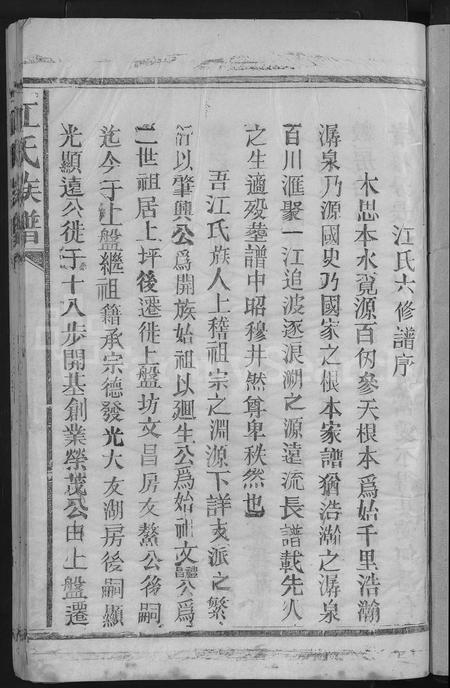 江氏六修譜序
木思本水覓源百仞參天根本爲始千里浩瀚
潺泉乃源國史乃國家之根本家譜猶浩瀚之潺泉
百川滙聚一江追波逐浪溯之源遠流長譜載先人
之生適歿塟譜中昭穆井然尊卑秩然也
吾江氏族人上稽祖宗之淵源下詳支派之繁
衍以肇興公爲開族始祖以廻生公為始祖文禮昌公爲
二世祖居上坪後遷徙上盤坊文昌房友鰲公後嗣
迄今于上盤繼祖籍承宗德發光大友湖房後嗣顯
光顯遠公徙于十八步開基創業榮茂公由上盤遷
江氏族譜